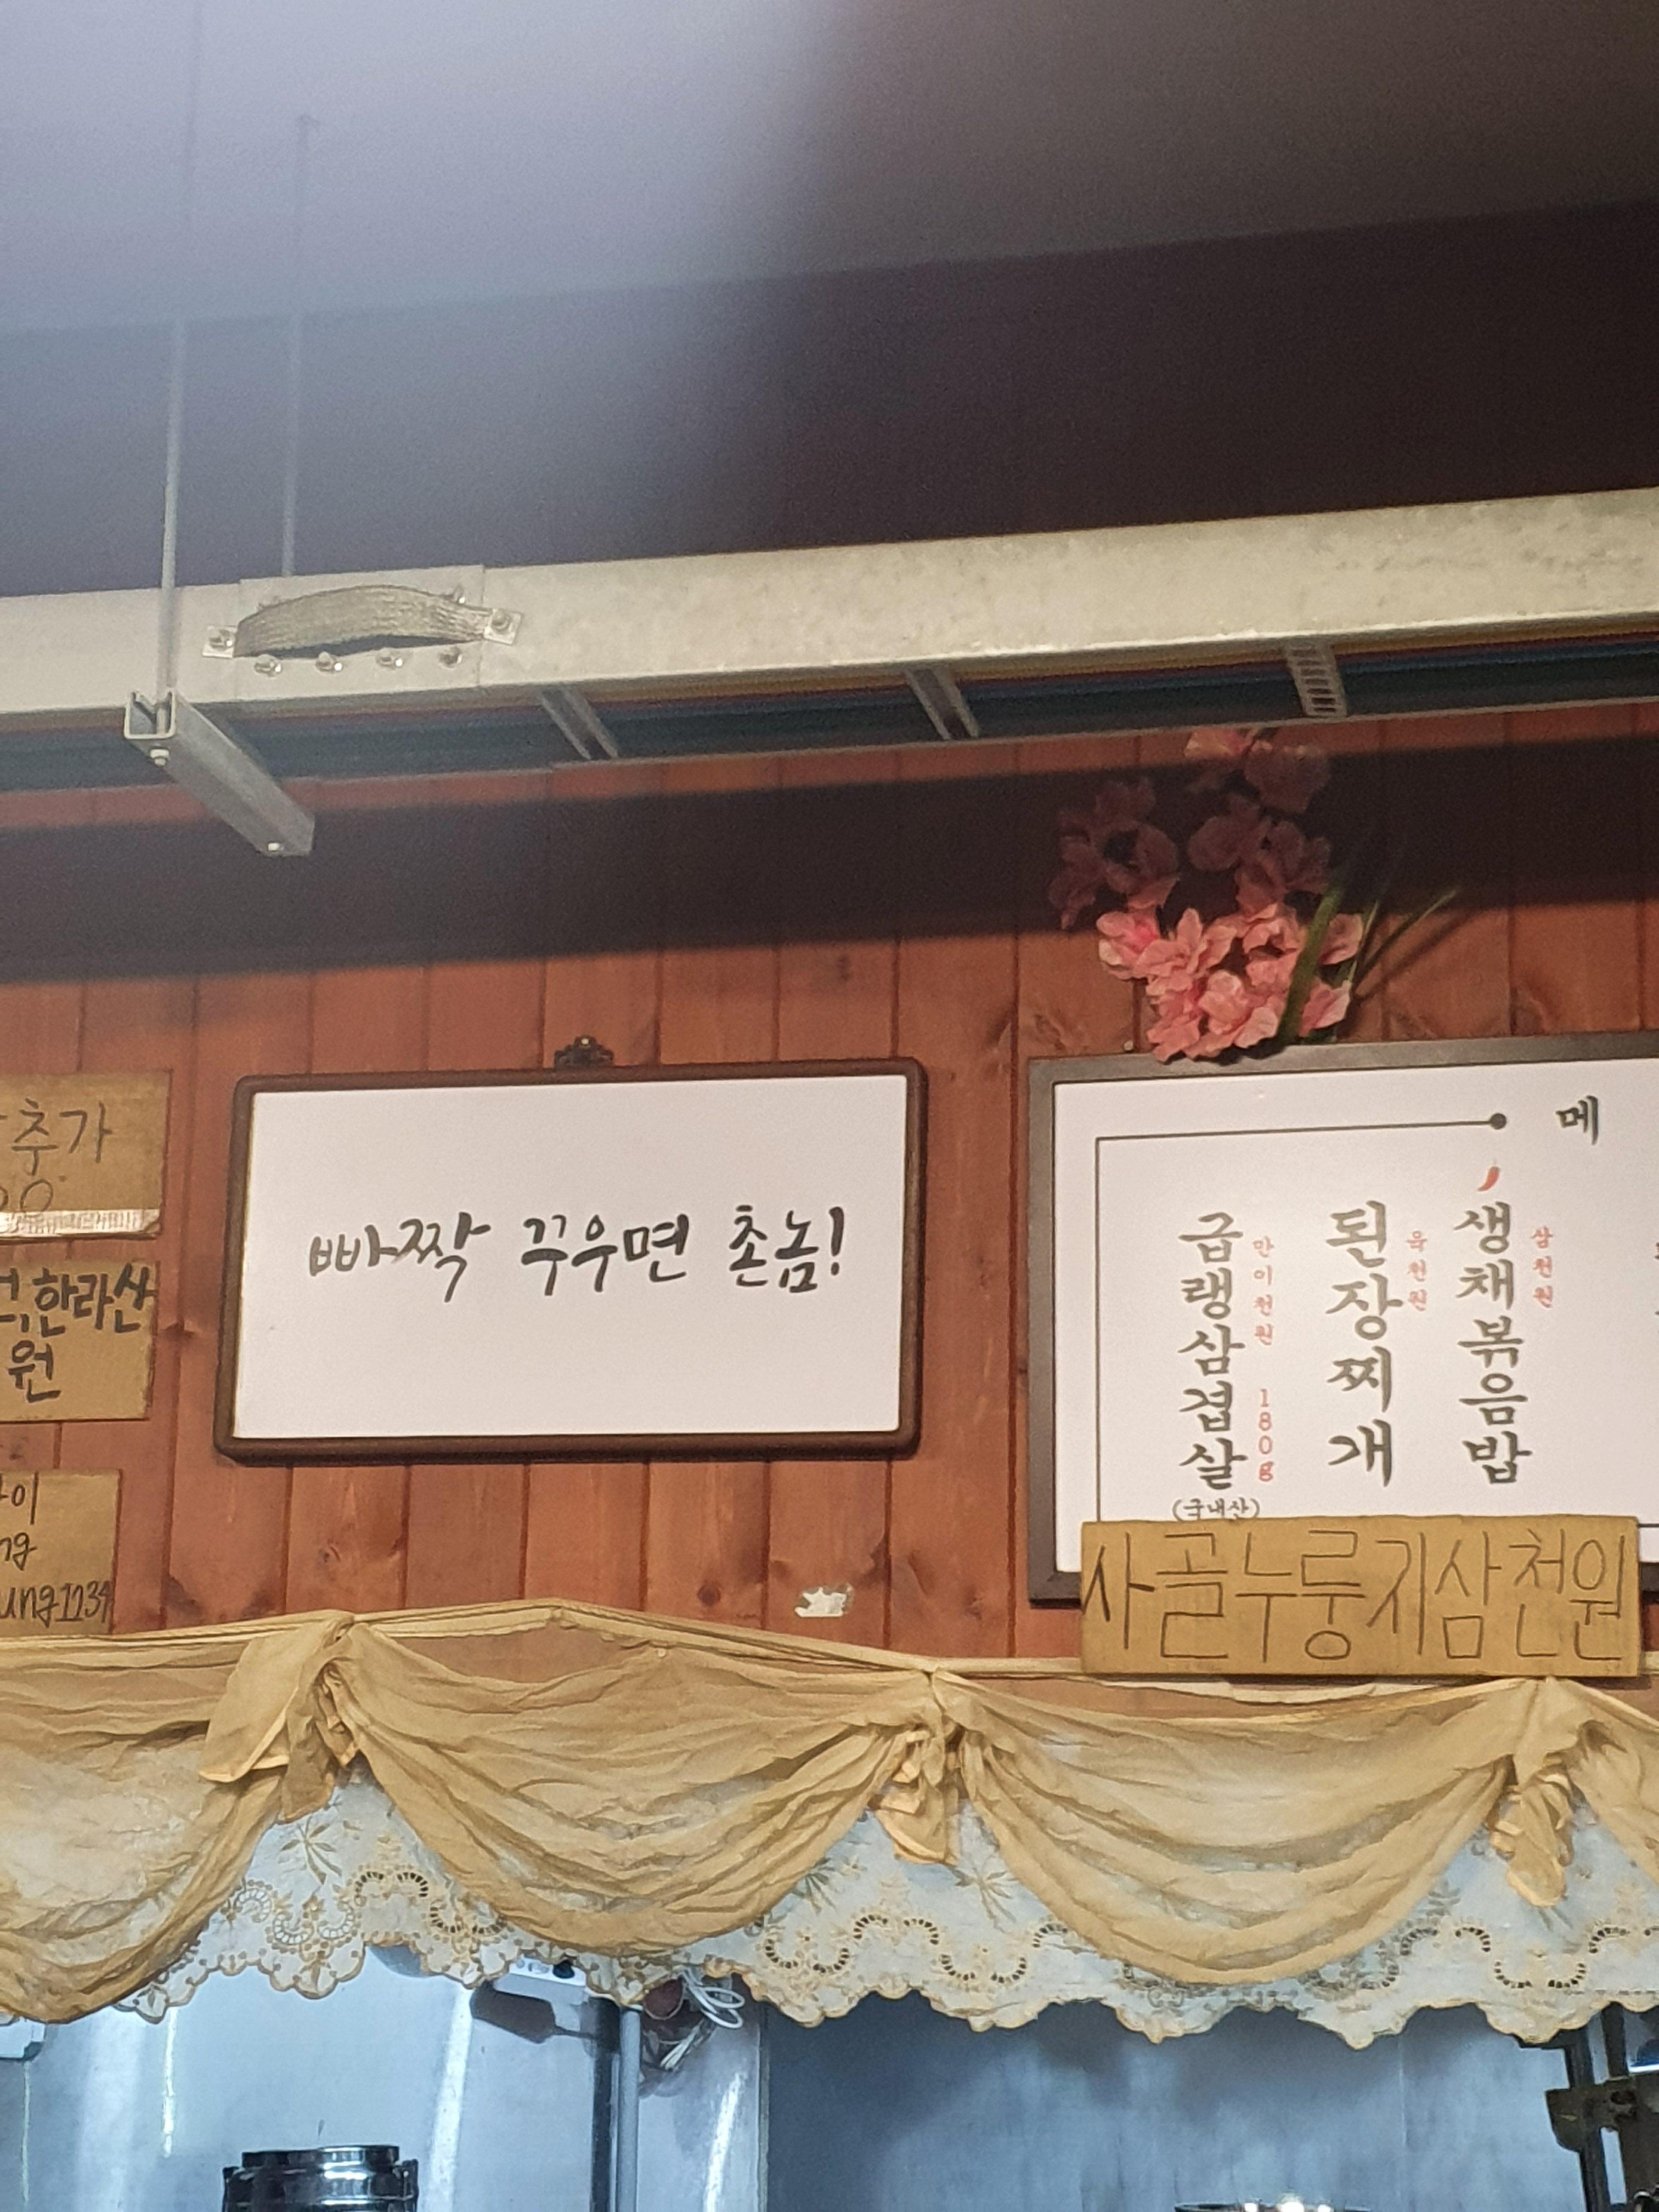 추가
한라산
원
ung1134
빠짝 꾸우면 촌놈!
메
생채볶음밥
삼천원
된장찌개
육천원
급랭삼겹살
만이천원 180g
(국내산)
사골누룽지삼천원